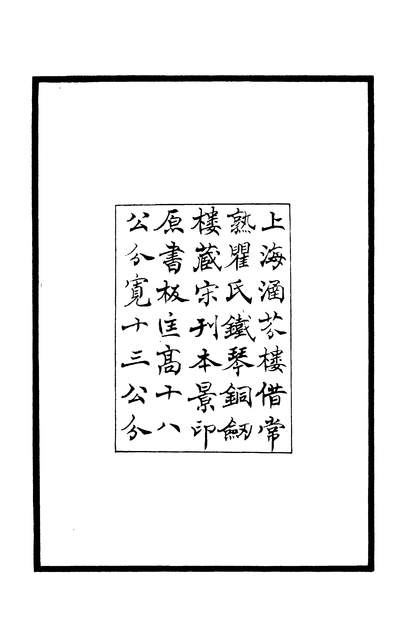 上海涵芬樓借常
熟瞿氏鐵琴銅劒
樓藏宋刊本景印
原書板匡高十八
公分寬十三公分